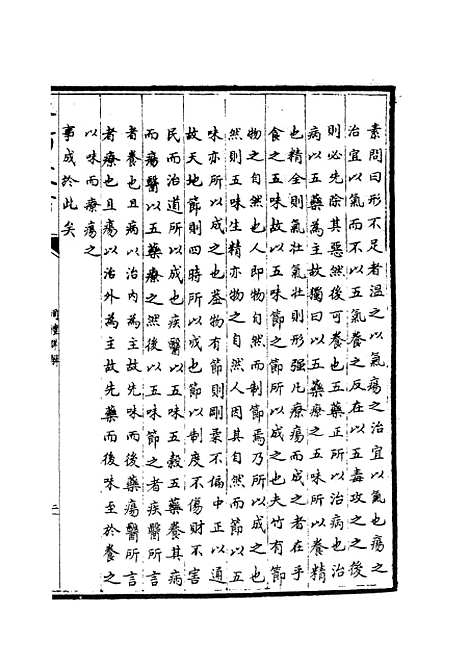 素問曰形不足者溫之以氣瘍之治宜以氣也瘍之
治宜以氣而不以五氣養之反在以五毒攻之之後
則必先除其惡然後可養也五藥正所以治病也治
病以五藥為主故獨曰以五藥療之五味所以養精
也精全則氣壯氣壯則形强凡療瘍而成之者在乎
食之五味故以五味節之節所以成之也夫竹有節
物之自然也人即物自然而制節焉乃所以成之也
然則五味生精亦物之自然人因其自然而節以五
味亦所以成之也葢物有節則剛柔不偏中正以通
故天地節則四時所以成也節以制度不傷財不害
民而治道所以成也疾醫以五味五穀五藥養其病
而瘍醫以五藥療之然後以五味節之者疾醫所言
者養也且病以治内為主故先味而後藥瘍醫所言
者療也且瘍以治外為主故先藥而後味至於養之
以味而療瘍之
事成於此矣
周禮詳解
二